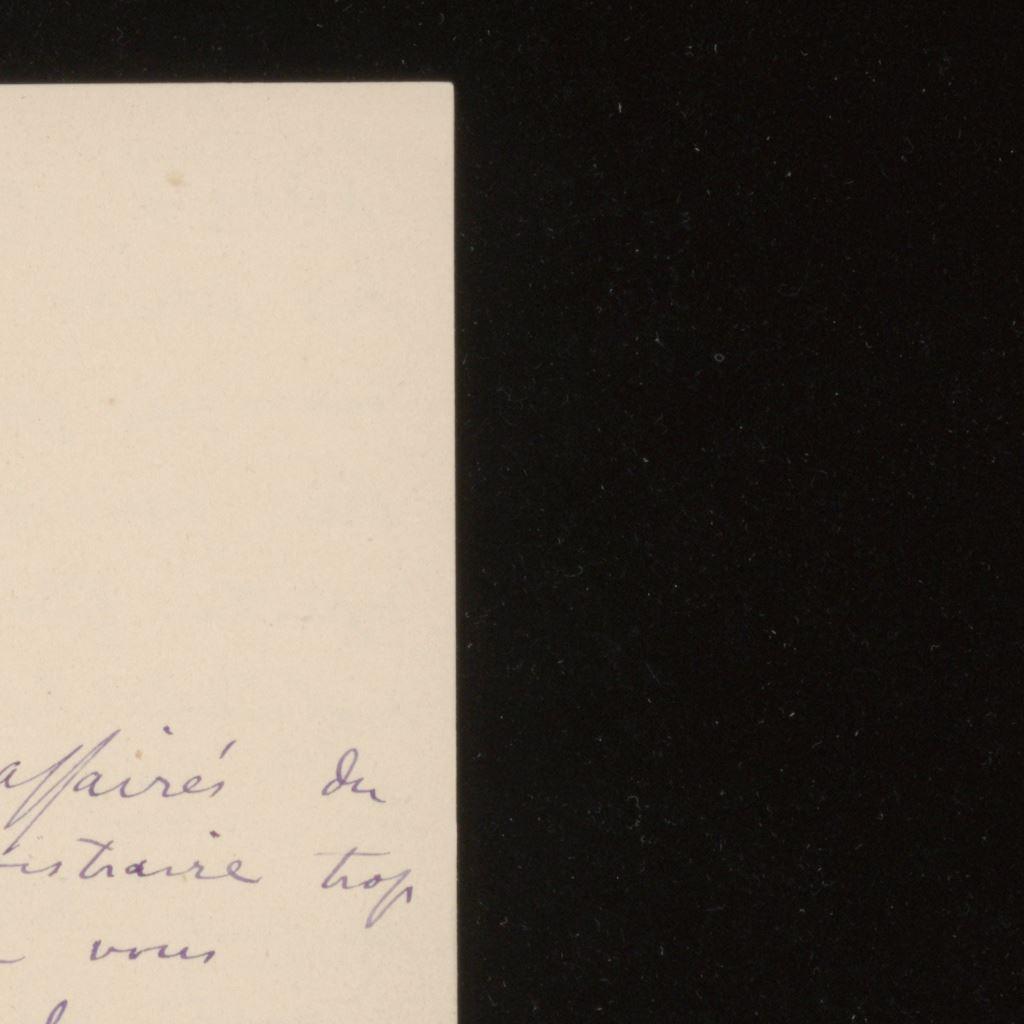 affairés du
distraire trop
vous